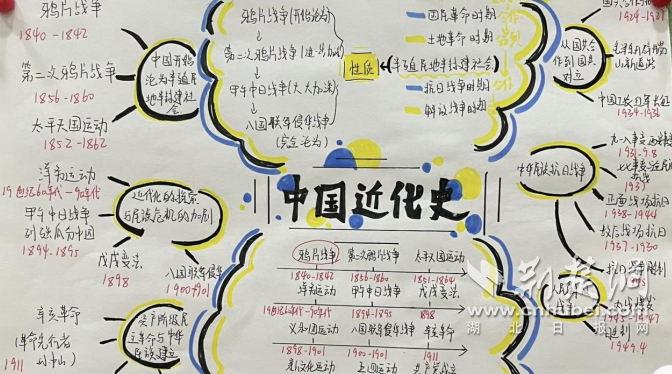 鸦片战争
1840-1842
第二次鸦片战争
1856-1860
太平天国运动
1852-1862
中国开始
沦为半殖民
地半封建社
会
鸦片战争(开始沦为)
第二次鸦片战争
甲午中日战争
八国联军侵华战争
(完全沦为)
性质
(半殖民地半封建社会)
国民革命时期
土地革命时期
抗日战争时期
解放战争时期
1924-1927
从国共合
作到国共
对立
1934-1936
洋务运动
19世纪60年代-90年代
甲午中日战争
列强瓜分中国
1894-1895
戊戌变法
1898
八国联军侵华
1900-1901
近代化的探索
与民族危机的加剧
中国近化史
中华民族抗日战争
1931-9.8
1937
正面战场抗日
1938-1944
敌后战场抗日
1937-1930
鸦片战争
第二次鸦片战争
太平天国运动
1840-1842
1856-1860
1851-1864
洋务运动
甲午中日战争
戊戌变法
19世纪60年代-90年代
1894-1895
1898
义和团运动
八国联军侵华战争
辛亥革命
1898-1901
1900-1901
1911
新文化运动
五四运动
共产党成立
辛亥革命
(革命先行者
孙中山)
1911
资产阶级民
主革命与中华
民族建立
1949.4
荆楚网
湖北日报网
www.cnhubei.com